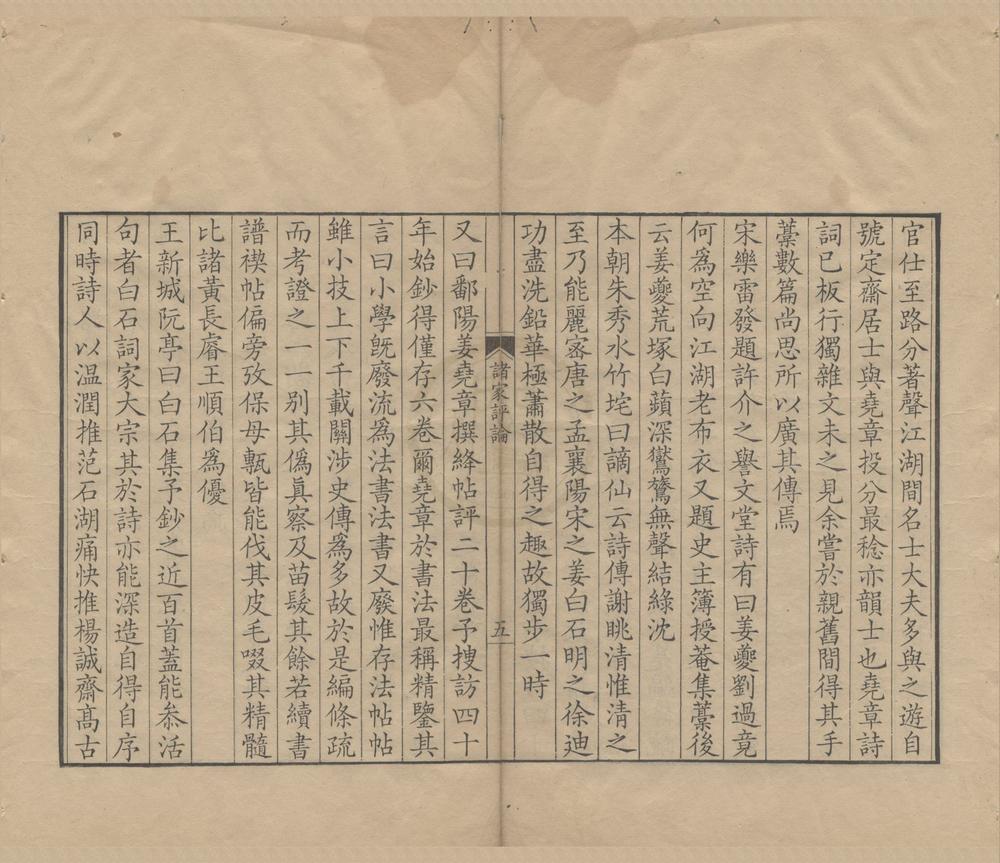 官仕至路分著聲江湖間名士大夫多與之遊自
號定齋居士與堯章投分最稔亦韻士也堯章詩
詞已板行獨雜文未之見余嘗於親舊間得其手
藁數篇尚思所以廣其傳焉
宋樂雷發題許介之譽文堂詩有曰姜夔劉過竟
何爲空向江湖老布衣又題史主簿授菴集藁後
云姜夔荒塚白蘋深鸑鷟無聲結綠沈
本朝朱秀水竹垞曰謫仙云詩傳謝眺清惟清之
至乃能麗宻唐之孟襄陽宋之姜白石明之徐迪
功盡洗鉛華極蕭散自得之趣故獨步一時
諸家評論
五
又曰鄱陽姜堯章撰絳帖評二十卷予搜訪四十
年始鈔得僅存六卷爾堯章於書法最稱精鑒其
言曰小學旣廢流爲法書法書又廢惟存法帖帖
雖小技上下千載關涉史傳爲多故於是編條疏
而考證之一一別其僞眞察及苗髮其餘若續書
譜禊帖偏旁攷保母甎皆能伐其皮毛啜其精髓
比諸黃長睿王順伯爲優
王新城阮亭曰白石集予鈔之近百首蓋能叅活
句者白石詞家大宗其於詩亦能深造自得自序
同時詩人以温潤推范石湖痛快推楊誠齋髙古